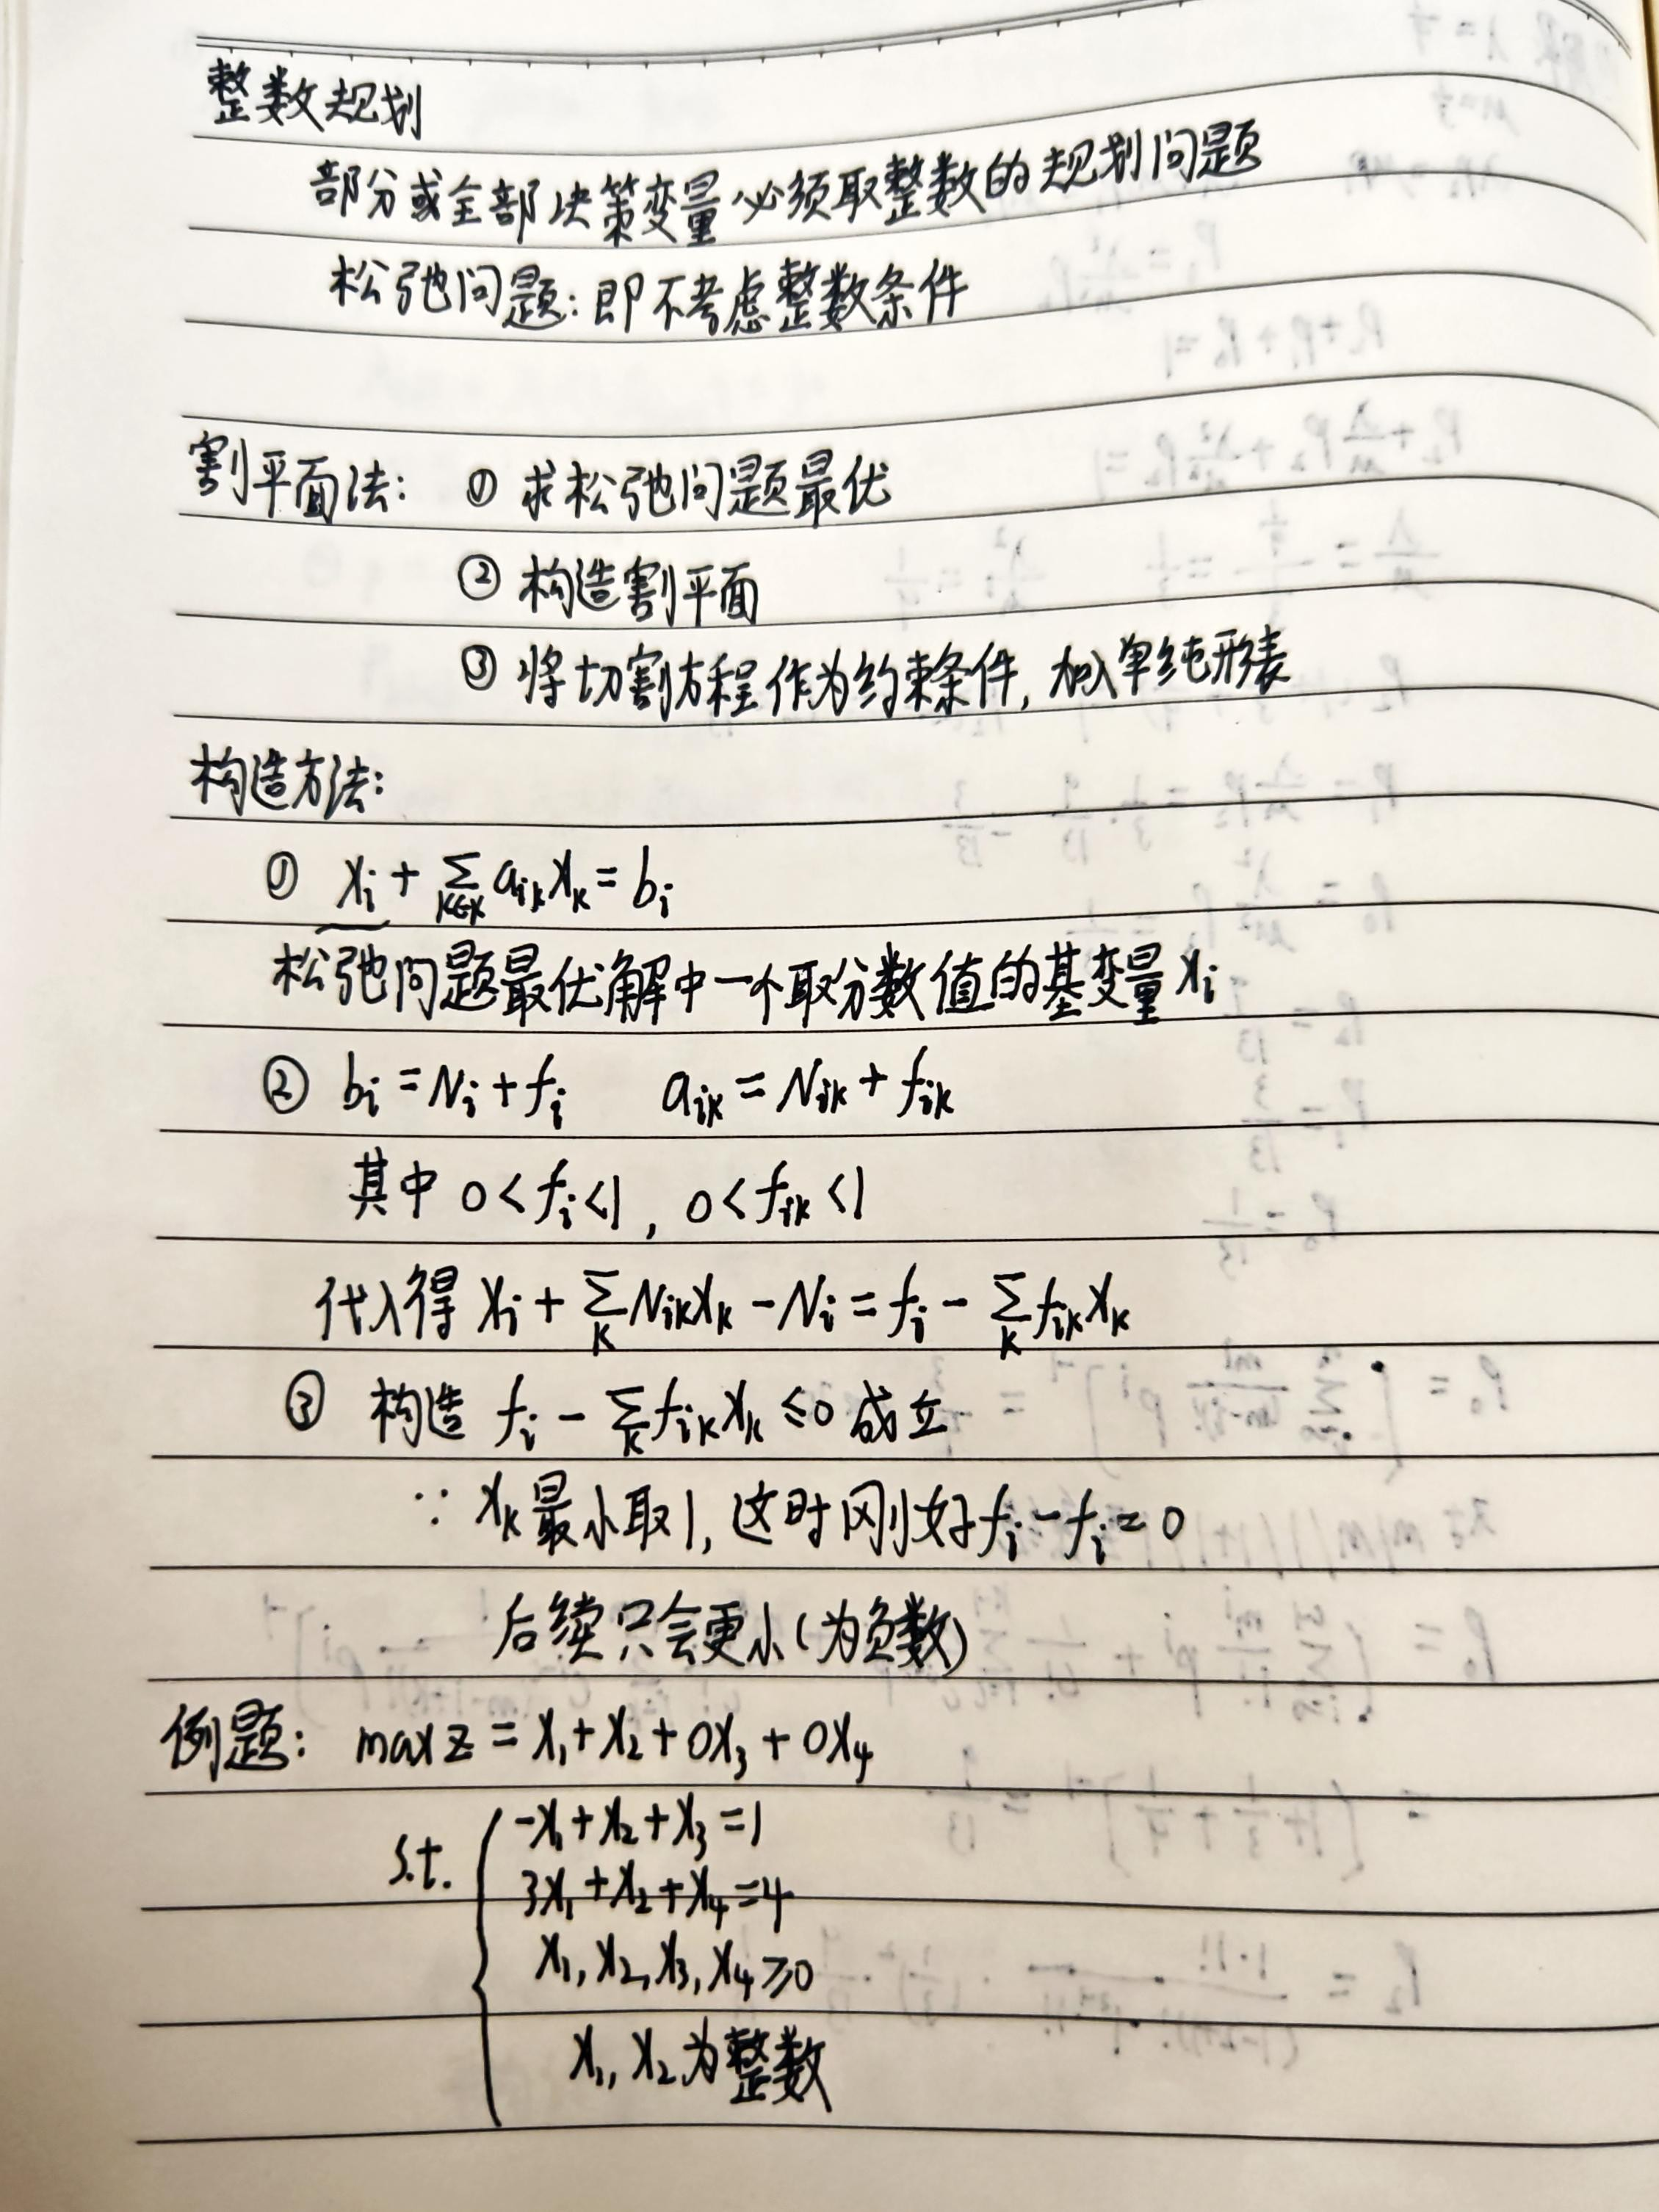 整数规划
部分或全部决策变量必须取整数的规划问题
松弛问题:即不考虑整数条件
割平面法: ① 求松弛问题最优
② 构造割平面
③ 将切割方程作为约束条件, 加入单纯形表
构造方法:
① xᵢ + ∑_{k∈K} aᵢₖxₖ = bᵢ
松弛问题最优解中一个取分数值的基变量 xᵢ
② bᵢ = Nᵢ + fᵢ aᵢₖ = Nᵢₖ + fᵢₖ
其中 0 < fᵢ < 1, 0 < fᵢₖ < 1
代入得 xᵢ + ∑_k Nᵢₖxₖ - Nᵢ = fᵢ - ∑_k fᵢₖxₖ
③ 构造 fᵢ - ∑_k fᵢₖxₖ ≤ 0 成立
∵ xₖ最小取1, 这时刚好fᵢ - fᵢ = 0
后续只会更小(为负数)
例题: max z = x₁ + x₂ + 0x₃ + 0x₄
s.t. { -x₁ + x₂ + x₃ = 1
3x₁ + x₂ + x₄ = 4
x₁, x₂, x₃, x₄ ≥ 0
x₁, x₂ 为整数